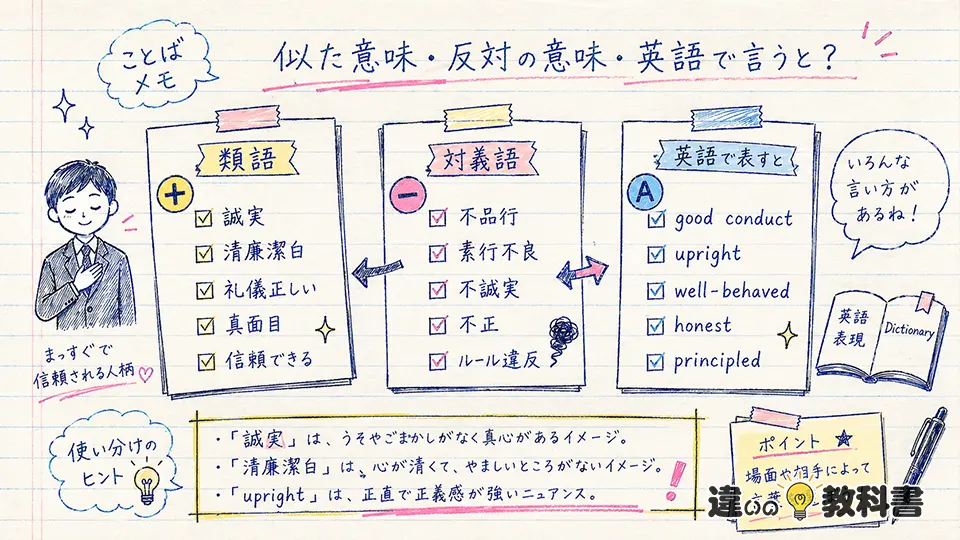 ことば
メモ
似た意味・反対の意味・英語で言うと？
類語
誠実
清廉潔白
礼儀正しい
真面目
信頼できる
対義語
不品行
素行不良
不誠実
不正
ルール違反
英語で表すと
A
good conduct
upright
well-behaved
honest
principled
いろんな
言い方が
あるね！
英語
表現
Dictionary
まっすぐで
信頼される人柄♡
使い分けの
ヒント
・「誠実」は、うそやごまかしがなく真心があるイメージ。
・「清廉潔白」は、心が清くて、やましいところがないイメージ。
・「upright」は、正直で正義感が強いニュアンス。
ポイント ★
場面や相手によって
違いの教科書